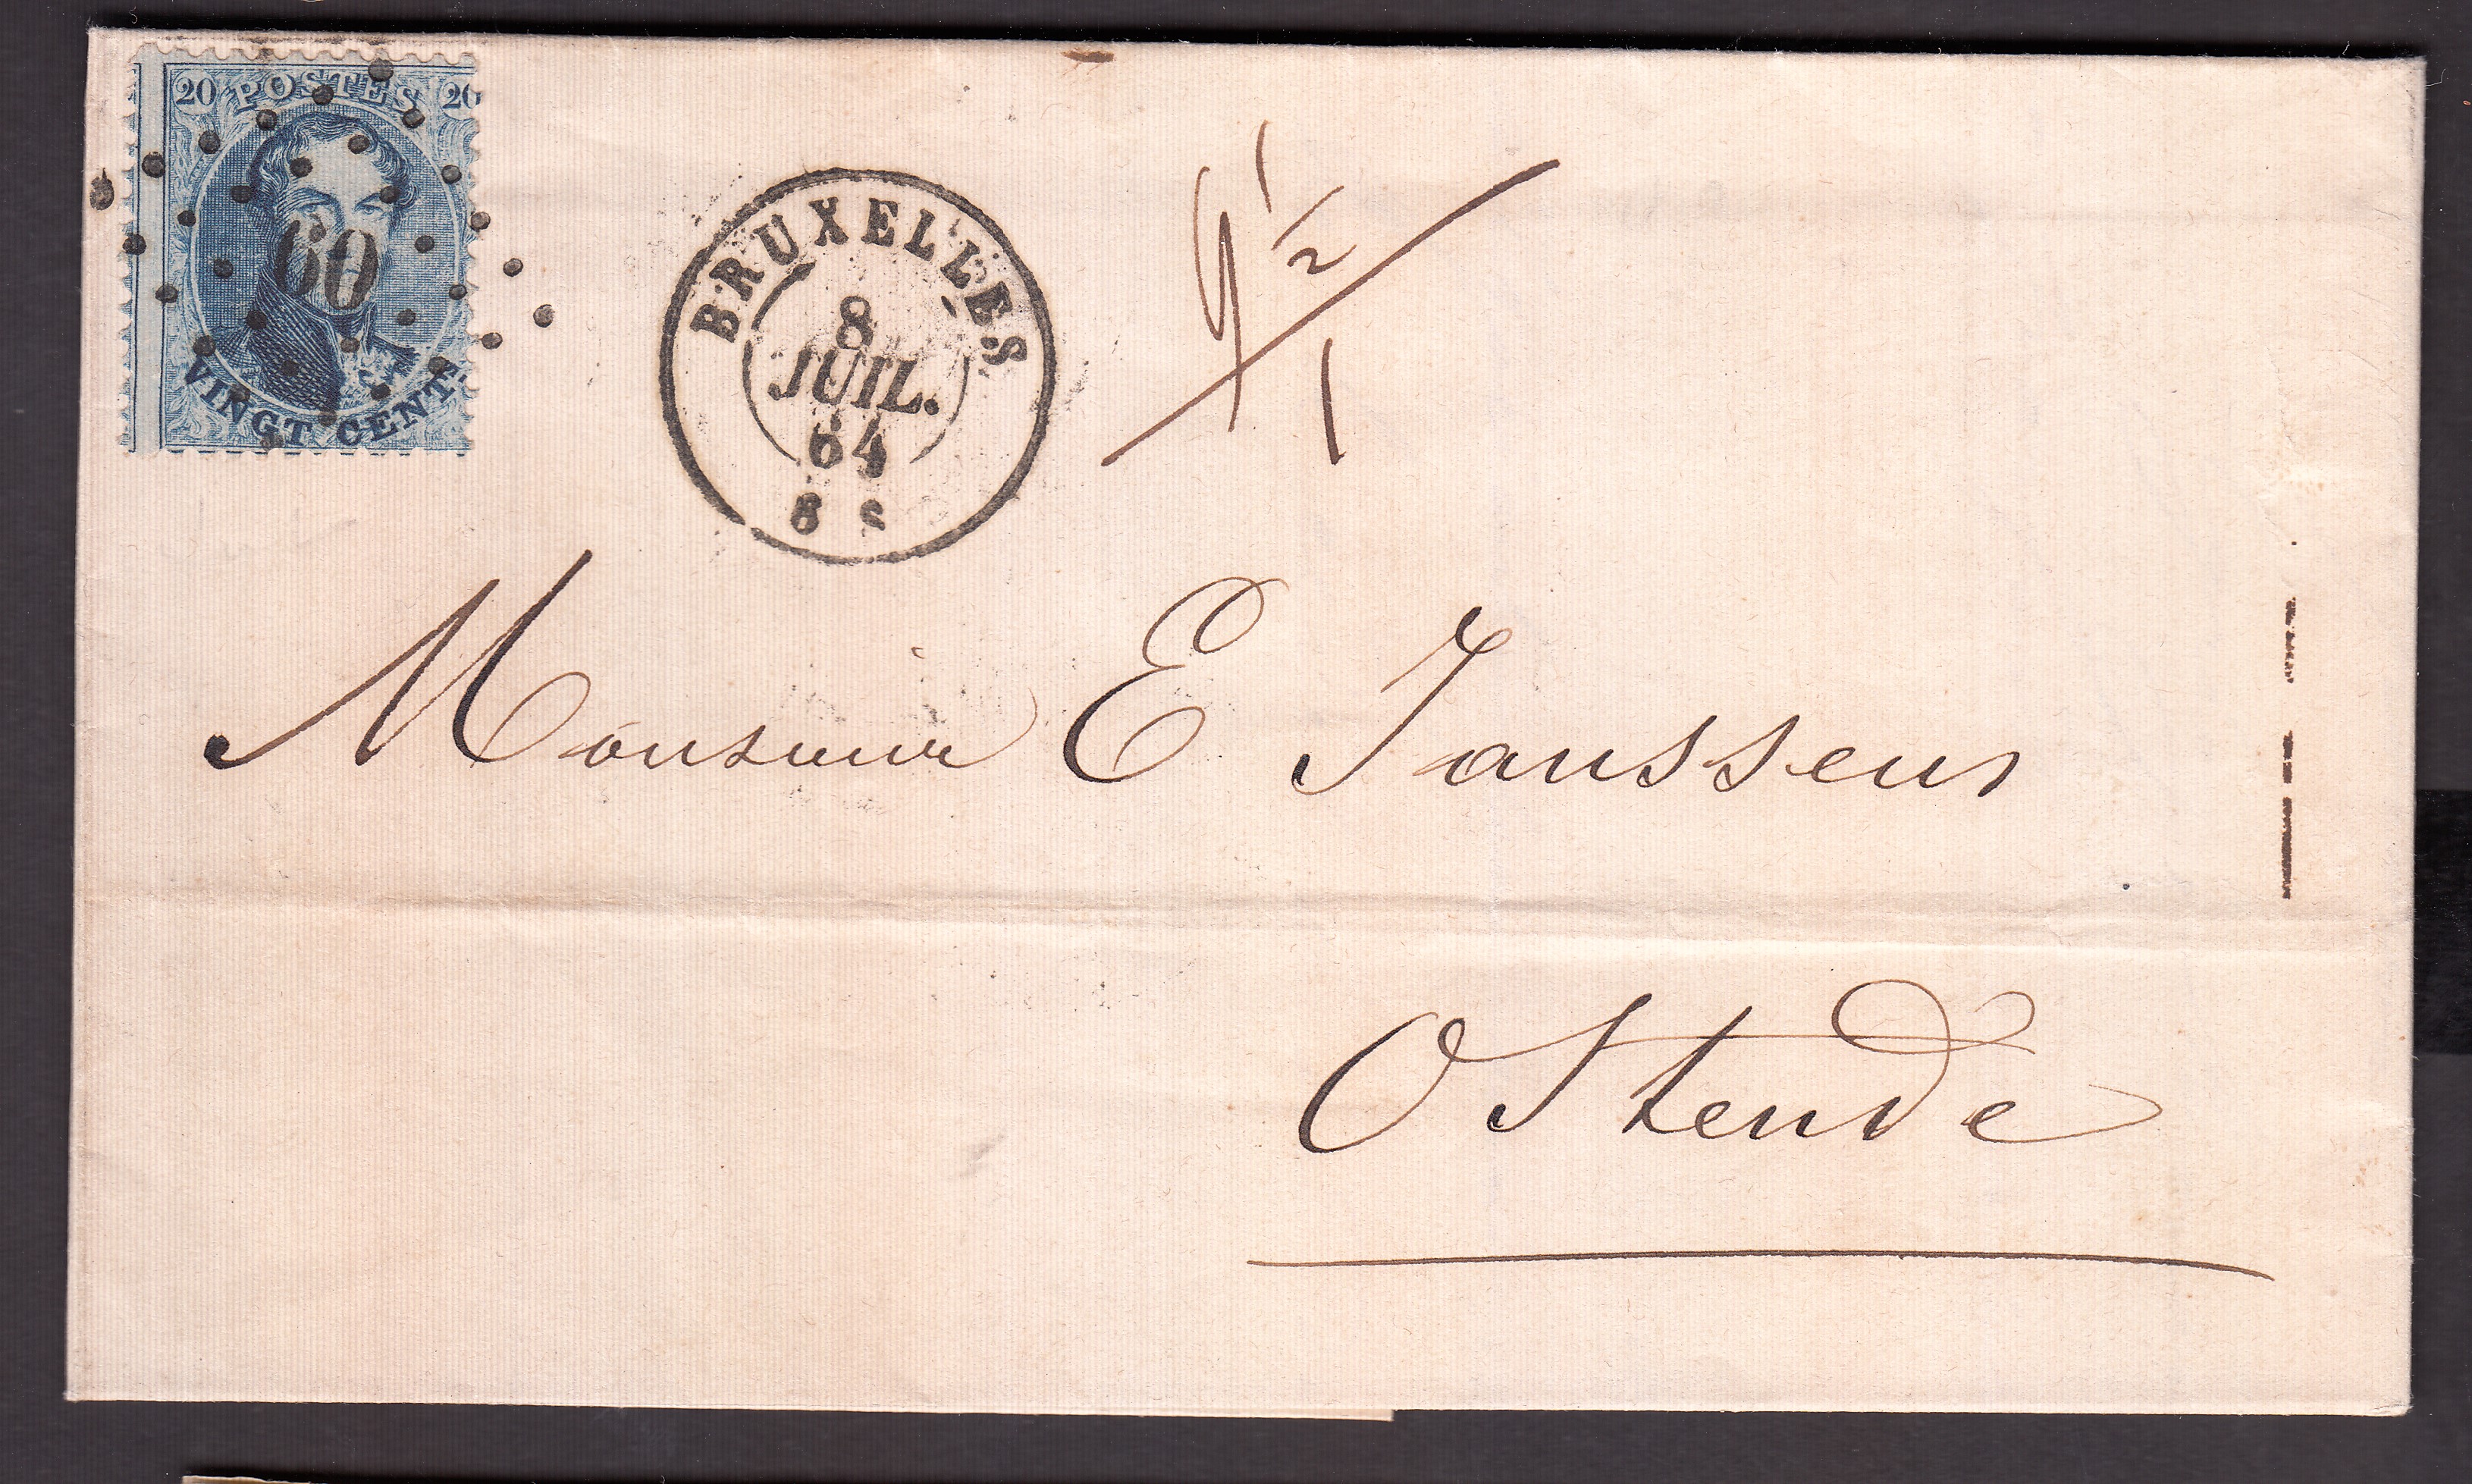 20 POSTES 20
60
VINGT CENTS.
BRUXELLES
8
JUIL.
64
8 S
9 1/2
1
Monsieur E Janssens
Ostende